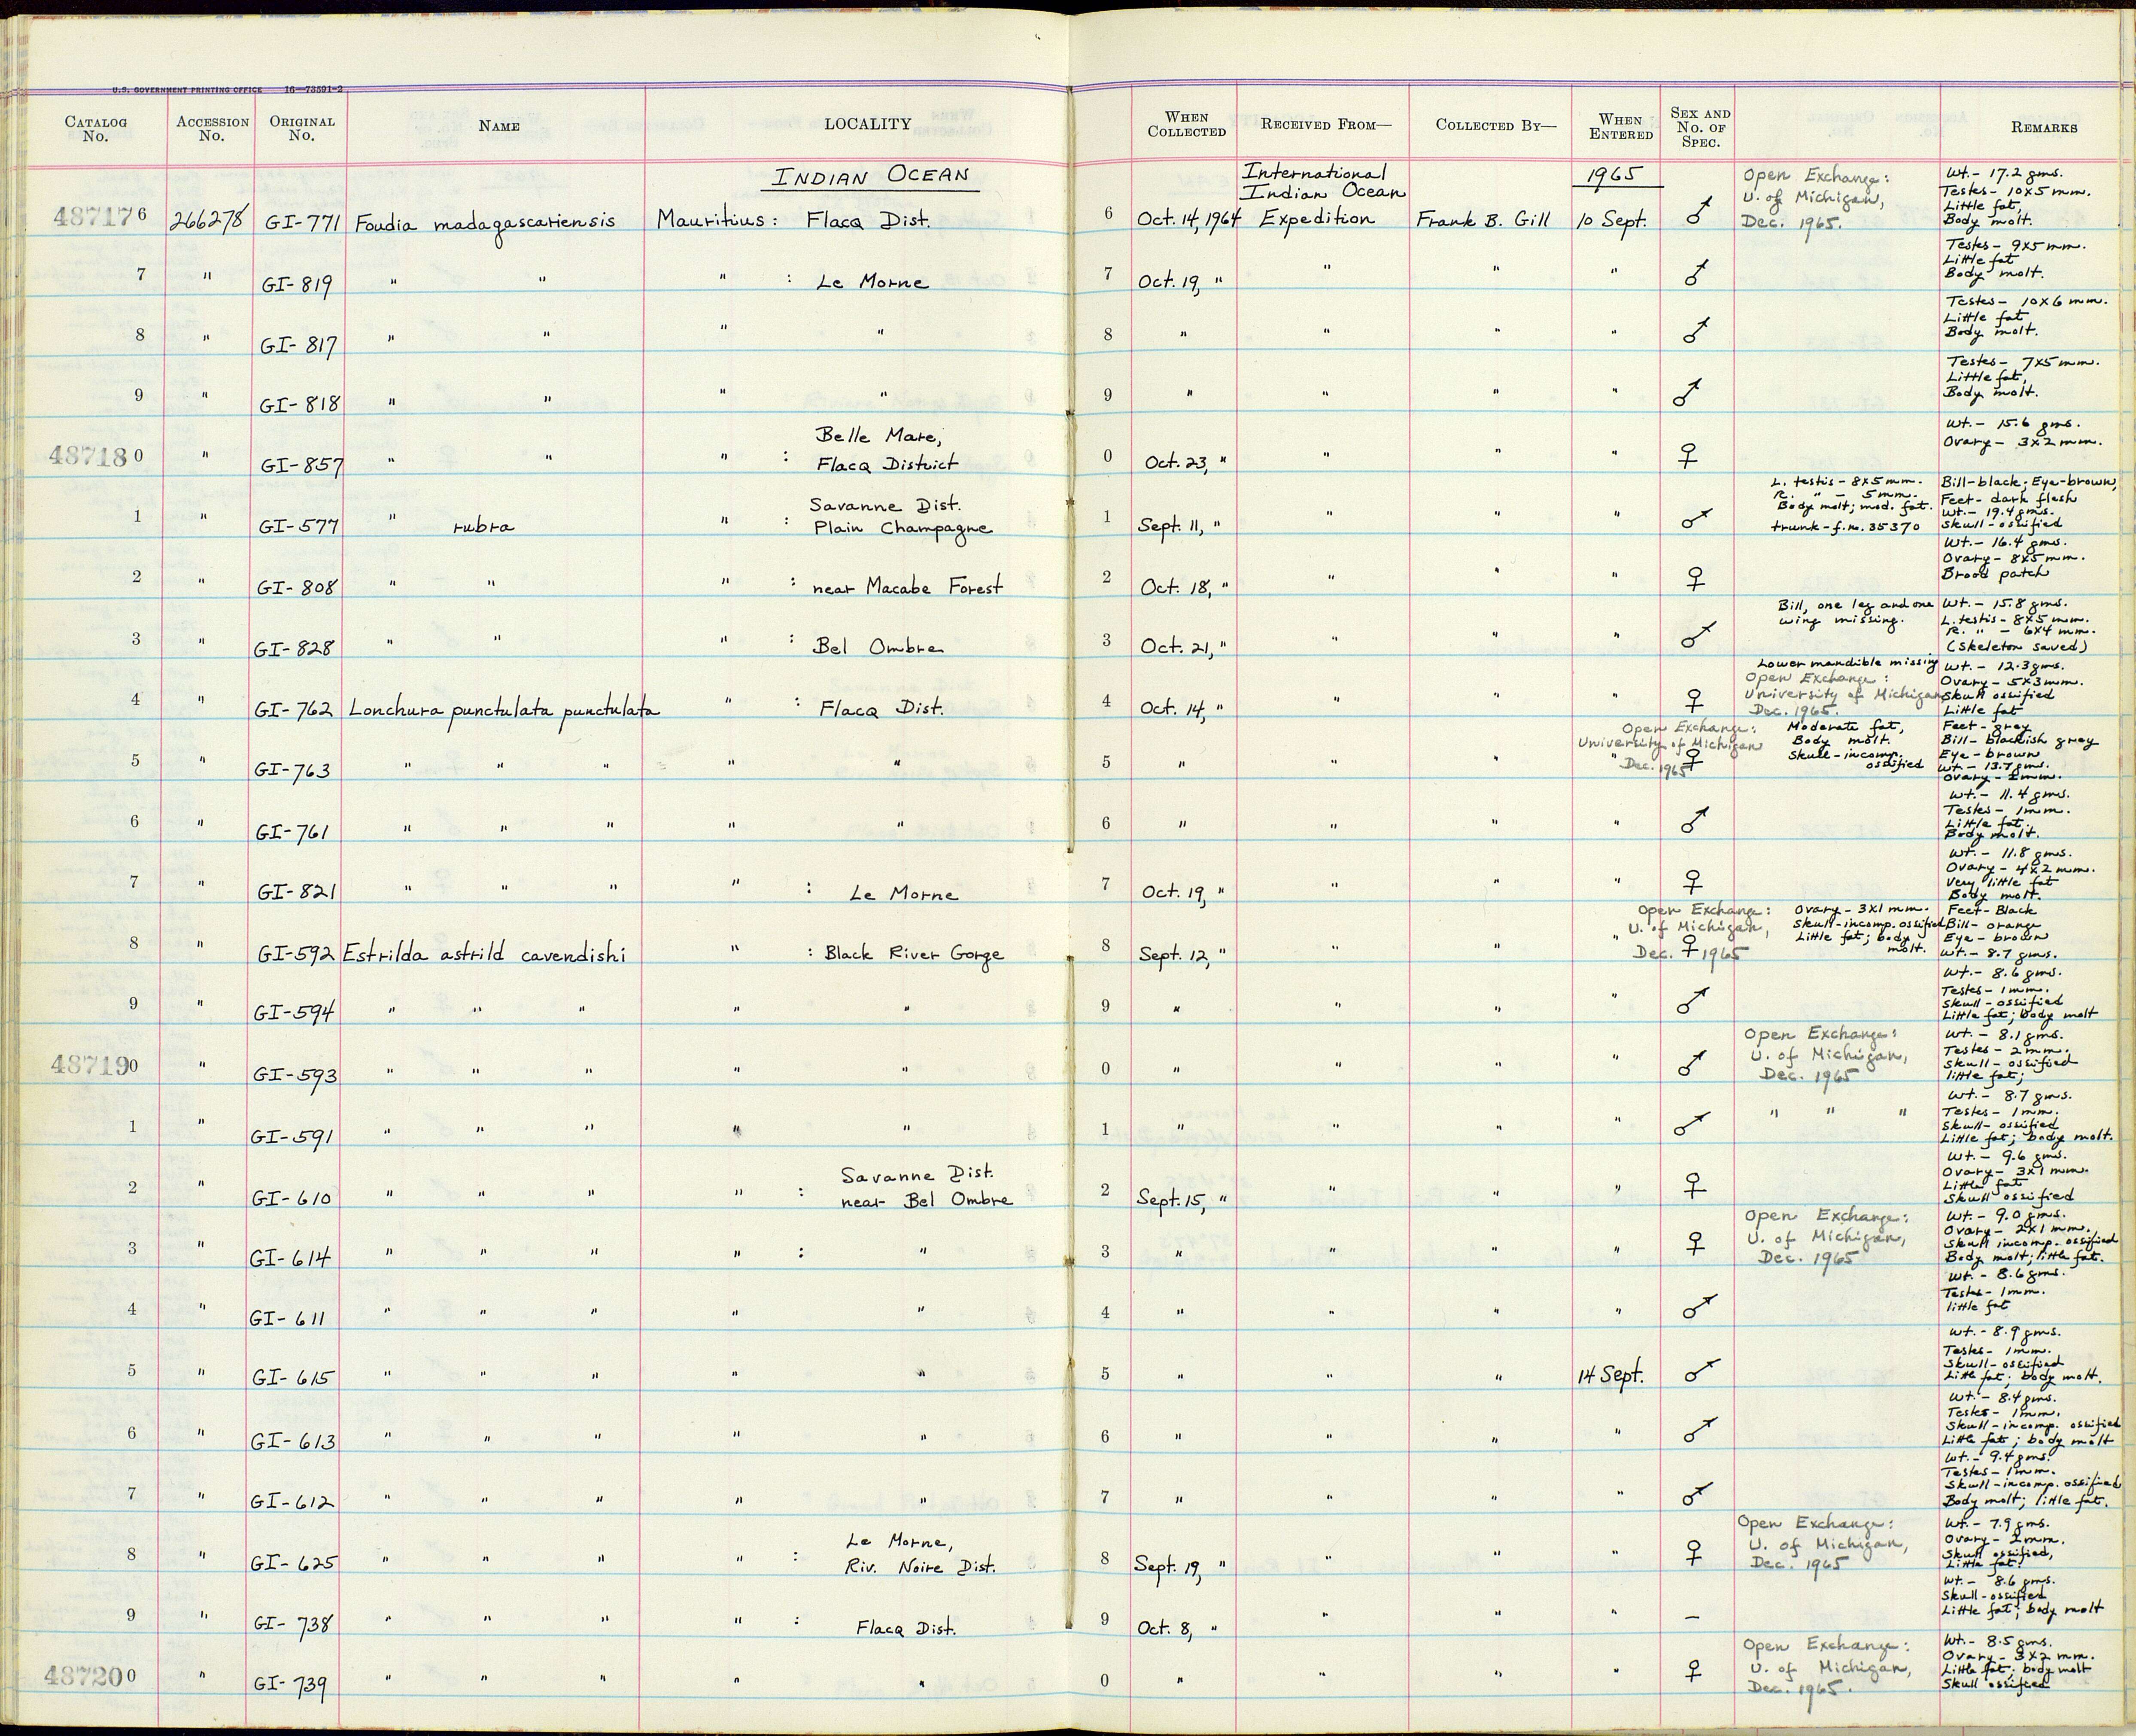 U.S. GOVERNMENT PRINTING OFFICE 16—73591-2
CATALOG No. ACCESSION No. ORIGINAL No. NAME LOCALITY WHEN COLLECTED RECEIVED FROM— COLLECTED BY— WHEN ENTERED SEX AND No. OF SPEC. REMARKS
INDIAN OCEAN International Indian Ocean 1965
487176 266278 GI-771 Foudia madagascariensis Mauritius: Flacq Dist. 6 Oct. 14, 1964 Expedition Frank B. Gill 10 Sept. ♂ Open Exchange: U. of Michigan, Dec. 1965. Wt.- 17.2 gms. Testes- 10x5 mm. Little fat, Body molt.
7 " GI-819 " " " : Le Morne 7 Oct. 19, " " " " ♂ Testes- 9x5 mm. Little fat Body molt.
8 " GI-817 " " " " 8 " " " " ♂ Testes- 10x6 mm. Little fat Body molt.
9 " GI-818 " " " " 9 " " " " ♂ Testes- 7x5 mm. Little fat, Body molt.
487180 " GI-857 " " " : Belle Mare, Flacq District 0 Oct. 23, " " " " ♀ Wt.- 15.6 gms. Ovary- 3x2 mm.
1 " GI-577 " rubra " : Savanne Dist. Plain Champagne 1 Sept. 11, " " " " ♂ L. testis- 8x5 mm. R. " - 5 mm. Body molt; mod. fat. trunk-f.no. 35370 Bill-black; Eye-brown, Feet- dark flesh Wt.- 19.4 gms. Skull-ossified
2 " GI-808 " " " : near Macabe Forest 2 Oct. 18, " " " " ♀ Wt.- 16.4 gms. Ovary- 8x5 mm. Brood patch
3 " GI-828 " " " : Bel Ombre 3 Oct. 21, " " " " ♂ Bill, one leg and one wing missing. Wt.- 15.8 gms. L. testis- 8x5 mm. R. " - 6x4 mm. (Skeleton saved)
4 " GI-762 Lonchura punctulata punctulata " : Flacq Dist. 4 Oct. 14, " " " " ♀ Lower mandible missing Open Exchange: University of Michigan Dec. 1965. Wt.- 12.3 gms. Ovary- 5x3 mm. Skull ossified Little fat
5 " GI-763 " " " " " 5 " " " " ♀ Open Exchange: University of Michigan Dec. 1965 Moderate fat, Body molt. Skull-incomp. ossified Feet- grey Bill- blackish grey Eye- brown Wt.- 13.7 gms. Ovary- mm.
6 " GI-761 " " " " " 6 " " " " ♂ Wt.- 11.4 gms. Testes- 1mm. Little fat. Body molt.
7 " GI-821 " " " " : Le Morne 7 Oct. 19, " " " " ♀ Wt.- 11.8 gms. Ovary- 4x2 mm. Very little fat Body molt.
8 " GI-592 Estrilda astrild cavendishi " : Black River Gorge 8 Sept. 12, " " " " ♀ Open Exchange: U. of Michigan, Dec. 1965 Ovary- 3x1 mm. Skull-incomp. ossified Little fat; body molt. Feet- Black Bill- orange Eye- brown Wt.- 8.7 gms.
9 " GI-594 " " " " " 9 " " " " ♂ Wt.- 8.6 gms. Testes- 1mm. Skull-ossified Little fat; body molt
487190 " GI-593 " " " " " 0 " " " " ♂ Open Exchange: U. of Michigan, Dec. 1965 Wt.- 8.1 gms. Testes- 2mm. Skull-ossified little fat;
1 " GI-591 " " " " " 1 " " " " ♂ " " " Wt.- 8.7 gms. Testes- 1mm. Skull-ossified Little fat; body molt.
2 " GI-610 " " " " : Savanne Dist. near Bel Ombre 2 Sept. 15, " " " " ♀ Wt.- 9.6 gms. Ovary- 3x1 mm. Little fat Skull ossified
3 " GI-614 " " " " : " 3 " " " " ♀ Open Exchange: U. of Michigan, Dec. 1965 Wt.- 9.0 gms. Ovary- 2x1 mm. Skull incomp. ossified Body molt; little fat.
4 " GI-611 " " " " " 4 " " " " ♂ Wt.- 8.6 gms. Testes- 1mm. little fat
5 " GI-615 " " " " " 5 " " " 14 Sept. ♂ Wt.- 8.9 gms. Testes- 1mm. Skull-ossified Little fat; body molt.
6 " GI-613 " " " " " 6 " " " " ♂ Wt.- 8.4 gms. Testes- 1mm. Skull-incomp. ossified Little fat; body molt
7 " GI-612 " " " " " 7 " " " " ♂ Wt.- 9.4 gms. Testes- 1mm. Skull-incomp. ossified Body molt; little fat.
8 " GI-625 " " " " : Le Morne, Riv. Noire Dist. 8 Sept. 19, " " " " ♀ Open Exchange: U. of Michigan, Dec. 1965 Wt.- 7.9 gms. Ovary- mm. Skull ossified, Little fat.
9 " GI-738 " " " " : Flacq Dist. 9 Oct. 8, " " " " — Wt.- 8.6 gms. Skull-ossified Little fat; body molt
487200 " GI-739 " " " " " 0 " " " " ♀ Open Exchange: U. of Michigan, Dec. 1965. Wt.- 8.5 gms. Ovary- 3x2 mm. Little fat; body molt Skull ossified